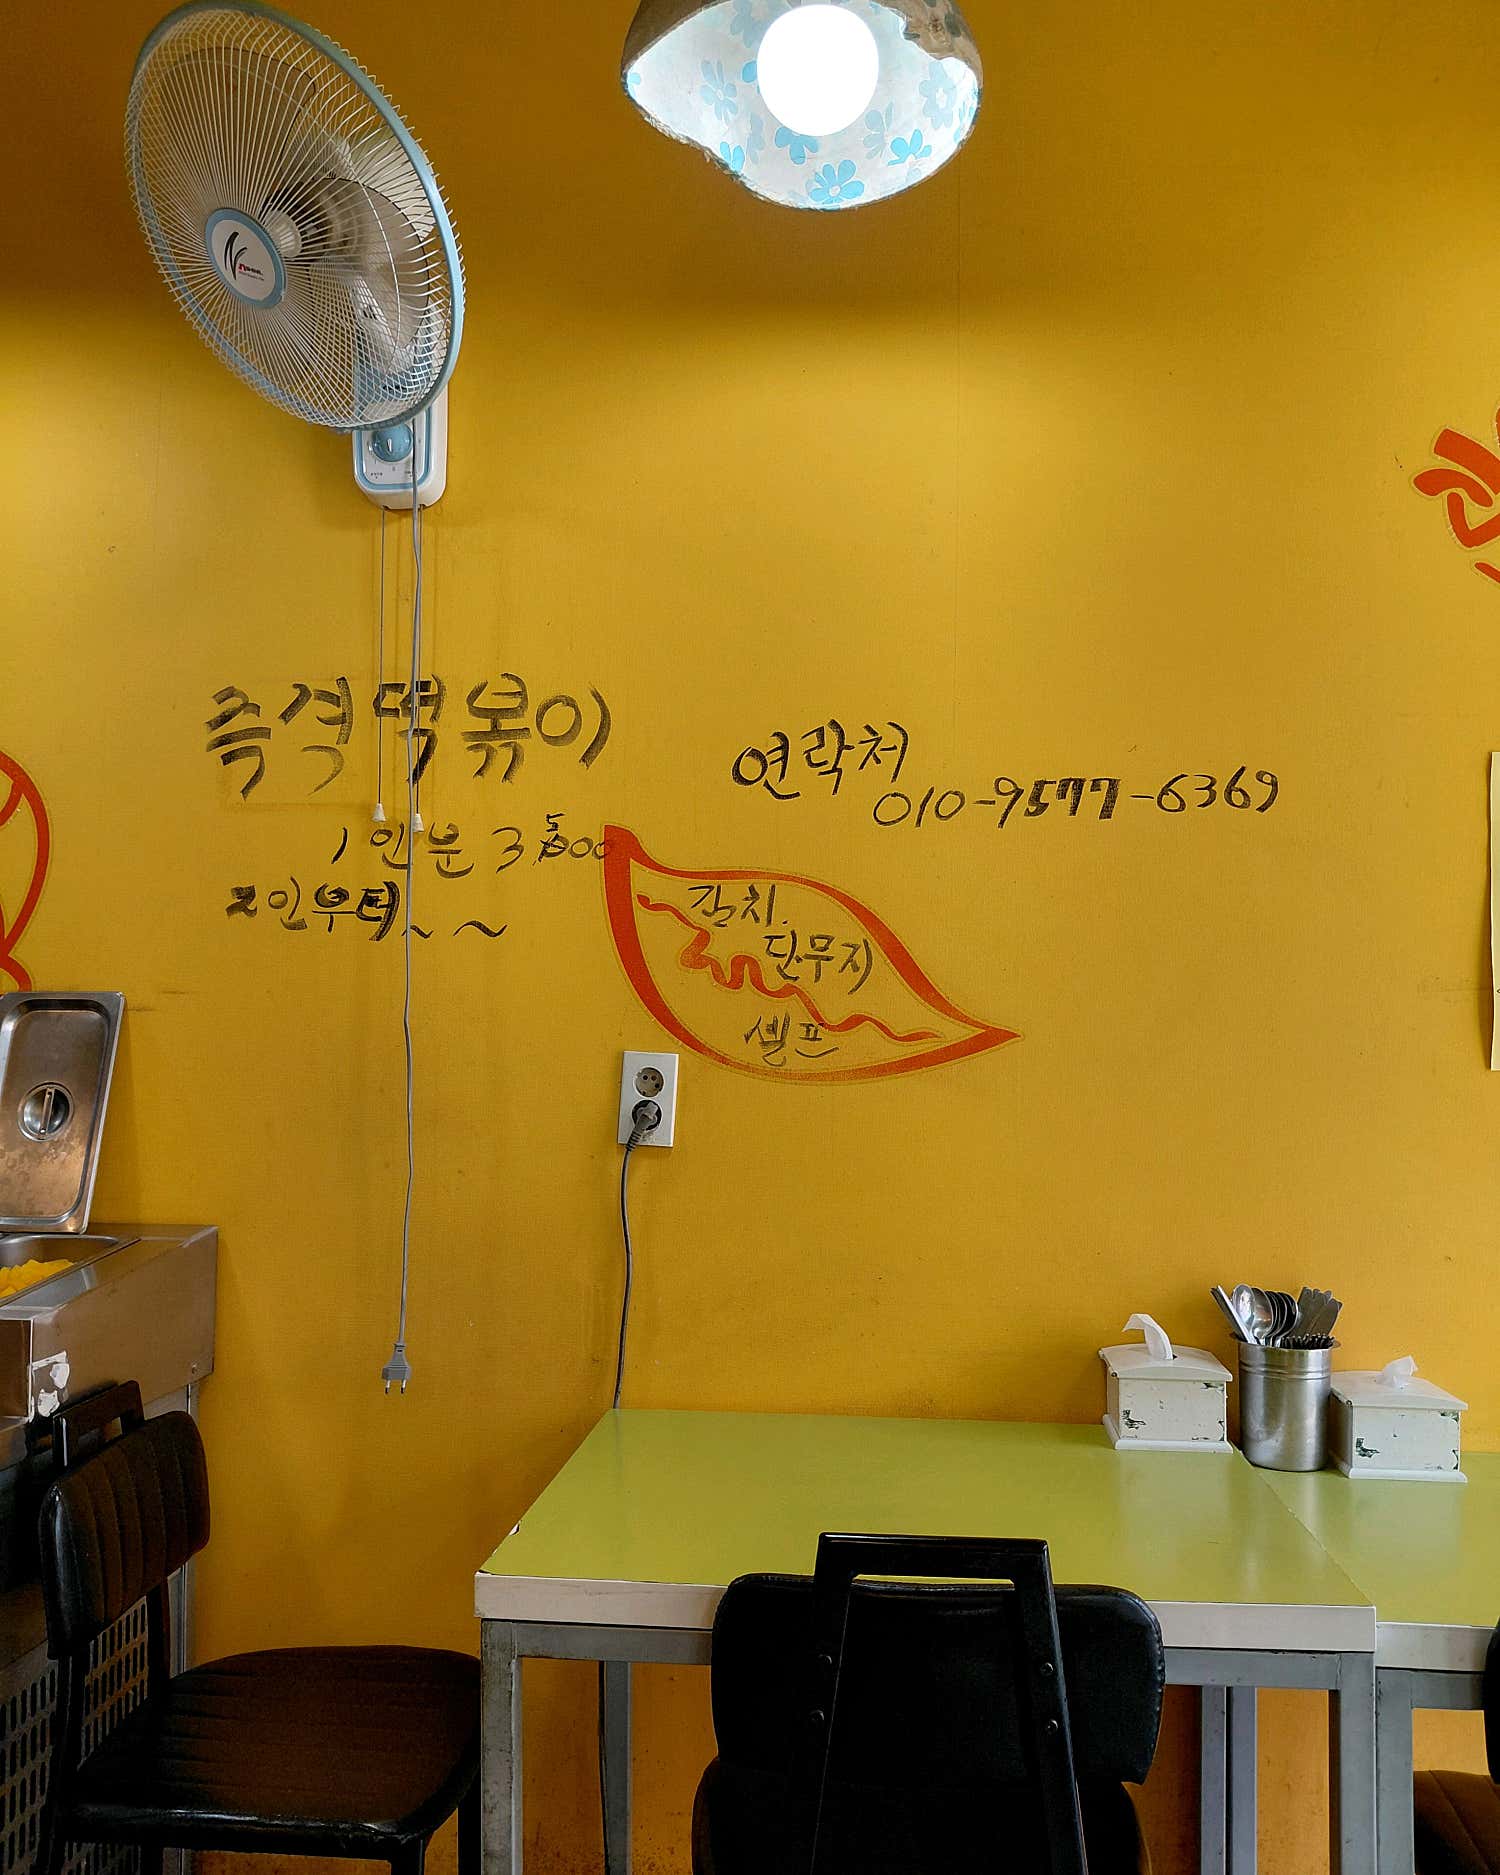 즉격떡볶이
1인분 3500
2인부터~ ~
연락처
010-9577-6369
김치.
단무지
셀프